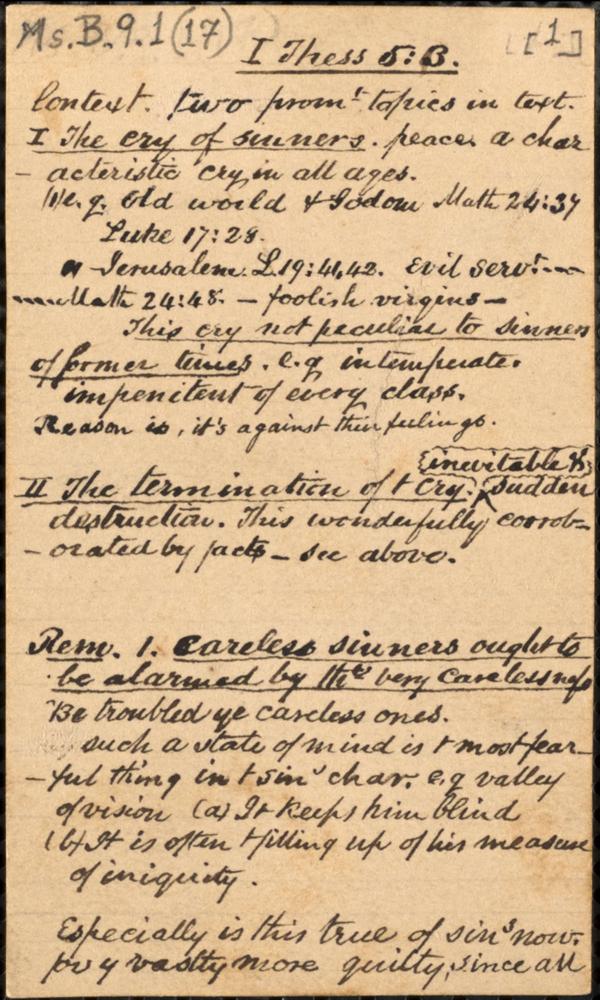 Ms. B. 9. 1 (17)
[1]
I Thess 5:3.
Context. Two prom^t topics in text.
I The cry of sinners. peace. a char
- acteristic cry in all ages.
(1) e.g. Old world & Sodom Math 24:37
Luke 17:28.
" - Jerusalem. L. 19:41,42. Evil serv^t. —
— Math 24:48. — foolish virgins —
This cry not peculiar to sinners
of former times. e.g. intemperate.
impenitent of every class.
Reason is, it's against their feelings.
{inevitable &}
II The termination of t cry. ^ Sudden
destruction. This wonderfully corrob-
- orated by facts - see above.
Rem. 1. Careless sinners ought to
be alarmed by th^r very carelessness
Be troubled ye careless ones.
such a state of mind is t most fear-
- ful thing in t sin^s char. e.g valley
of vision (a) It keeps him blind
(b) It is often t filling up of his measure
of iniquity.
Especially is this true of sin^s now.
for y vastly more guilty, since all